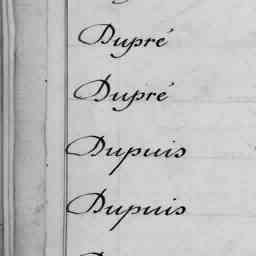 Dupré
Dupré
Dupuis
Dupuis